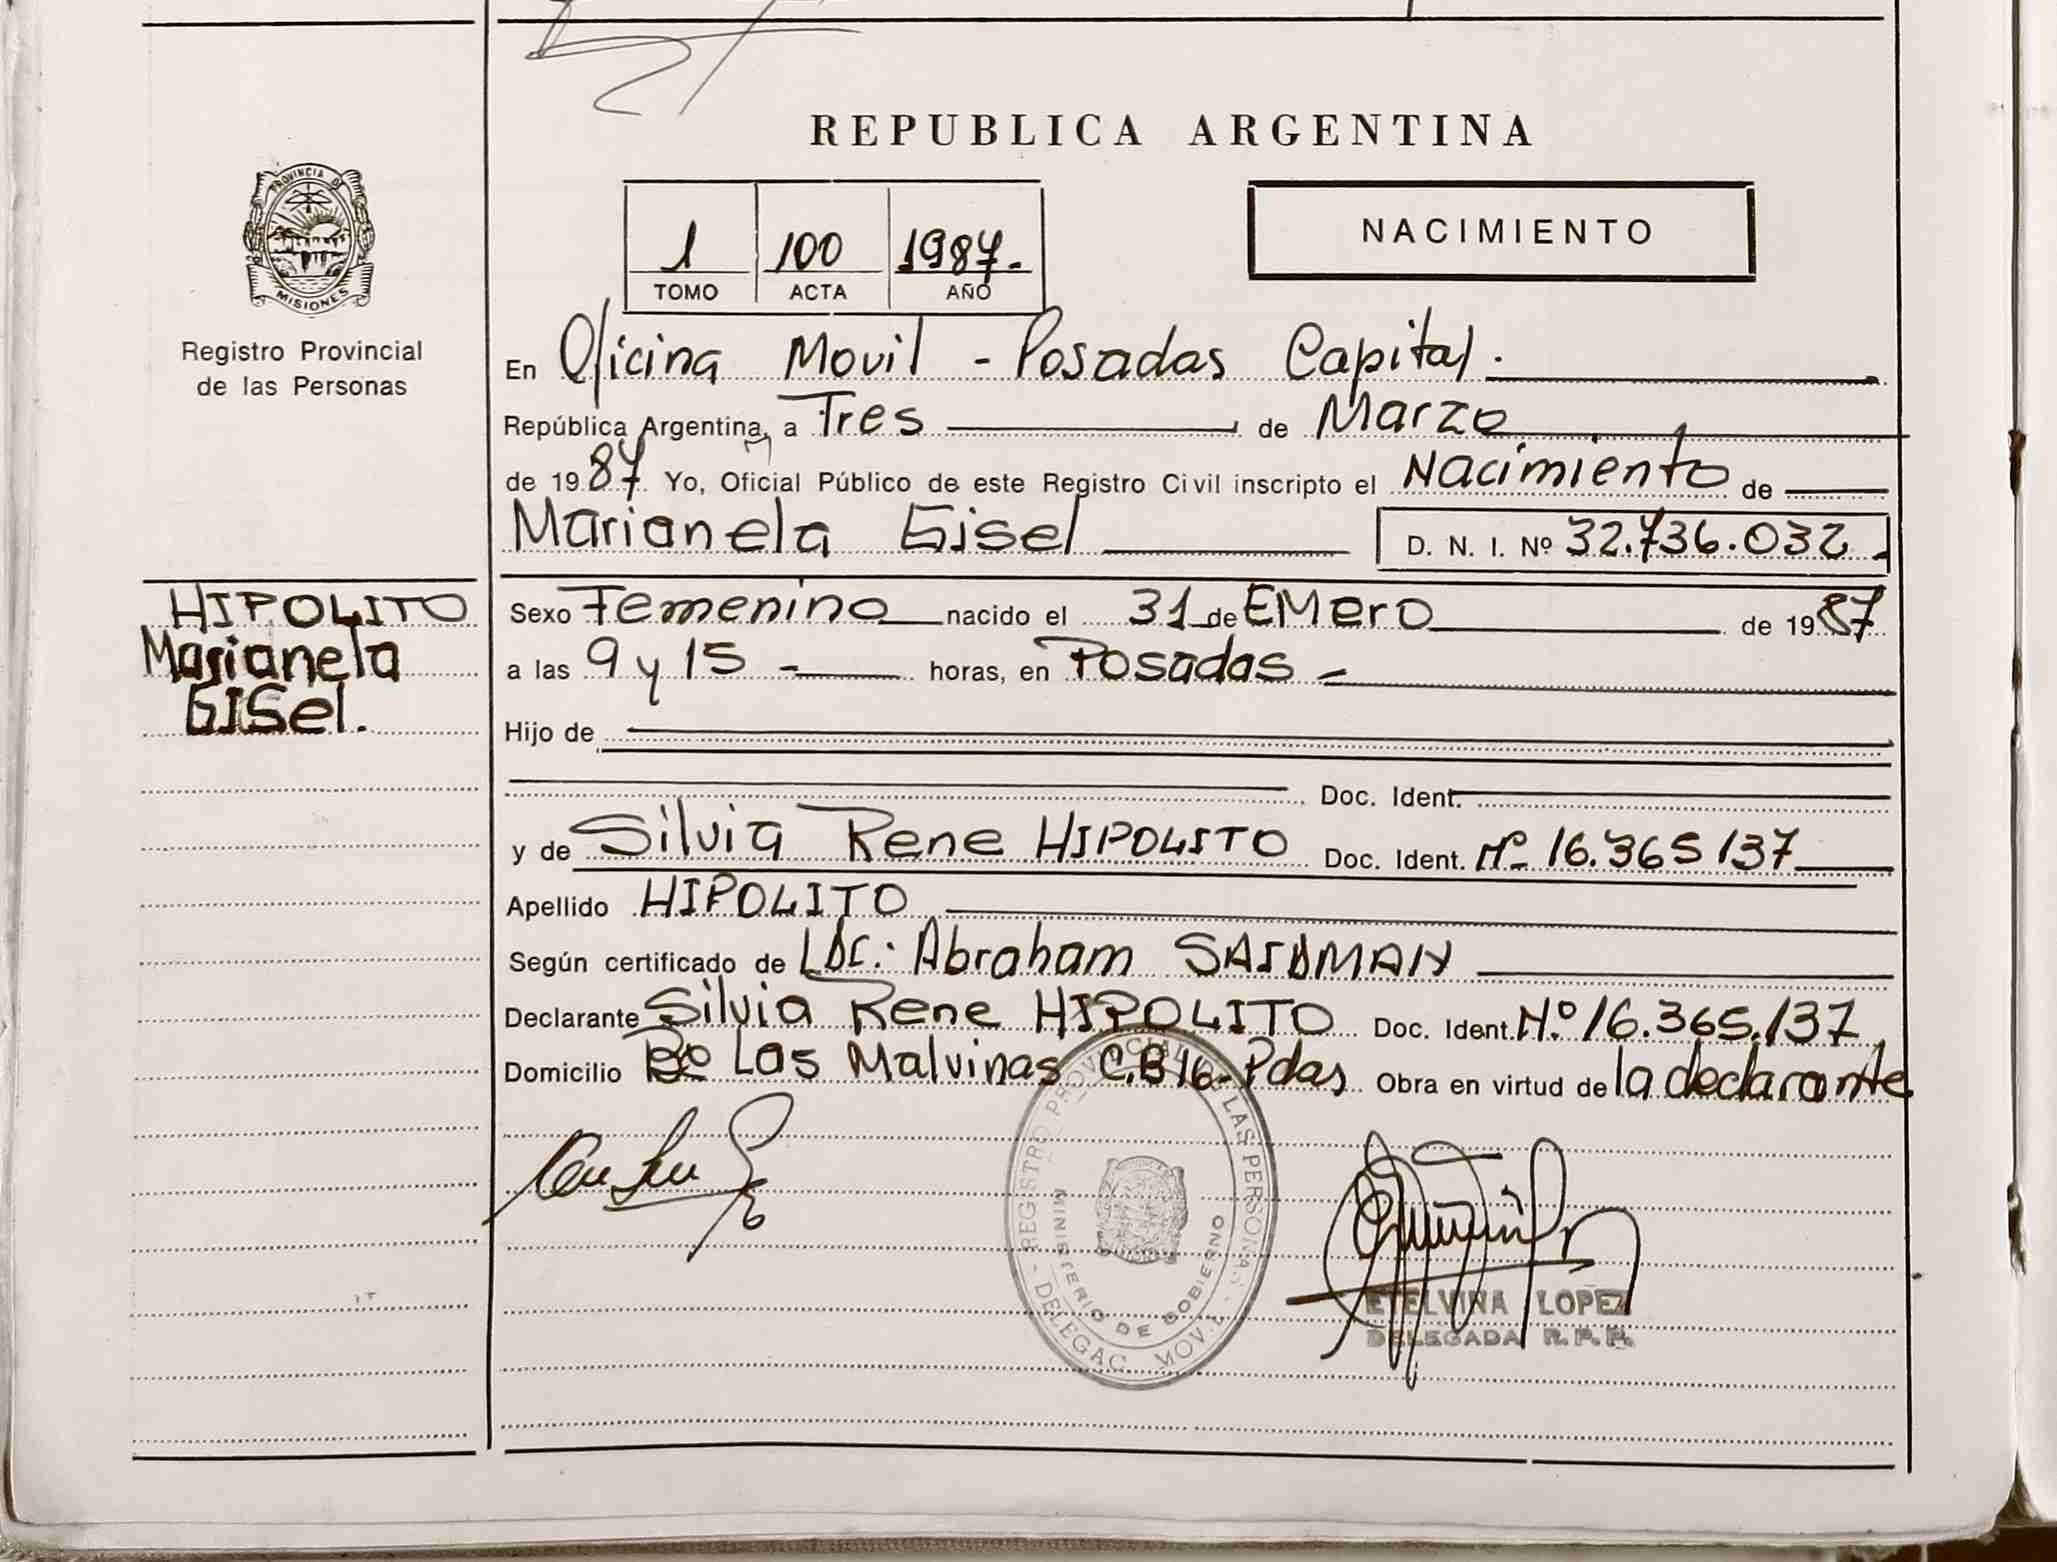 REPUBLICA ARGENTINA
PROVINCIA DE
MISIONES
Registro Provincial
de las Personas
1 100 1987.-
TOMO ACTA AÑO
NACIMIENTO
En Oficina Movil - Posadas Capital.
República Argentina, a Tres de Marzo
de 1987 Yo, Oficial Público de este Registro Civil inscripto el Nacimiento de
Marianela Gisel D. N. I. Nº 32.736.032.-
HIPOLITO
Marianela
GISel.
Sexo Femenino nacido el 31 de EMero de 1987
a las 9 y 15 - horas, en Posadas -
Hijo de
Doc. Ident.
y de Silvia Rene HIPOLITO Doc. Ident. Nº 16.365137
Apellido HIPOLITO
Según certificado de Abraham
Declarante Silvia Rene HIPOLITO Doc. Ident. N.º 16.365.137
Domicilio Bº Las Malvinas C.B 16- Pdas Obra en virtud de la declarante
REGISTRO PROVINCIAL DE LAS PERSONAS
MINISTERIO DE GOBIERNO
- DELEGAC. MOVIL -
ETELVINA LOPEZ
DELEGADA R.P.P.